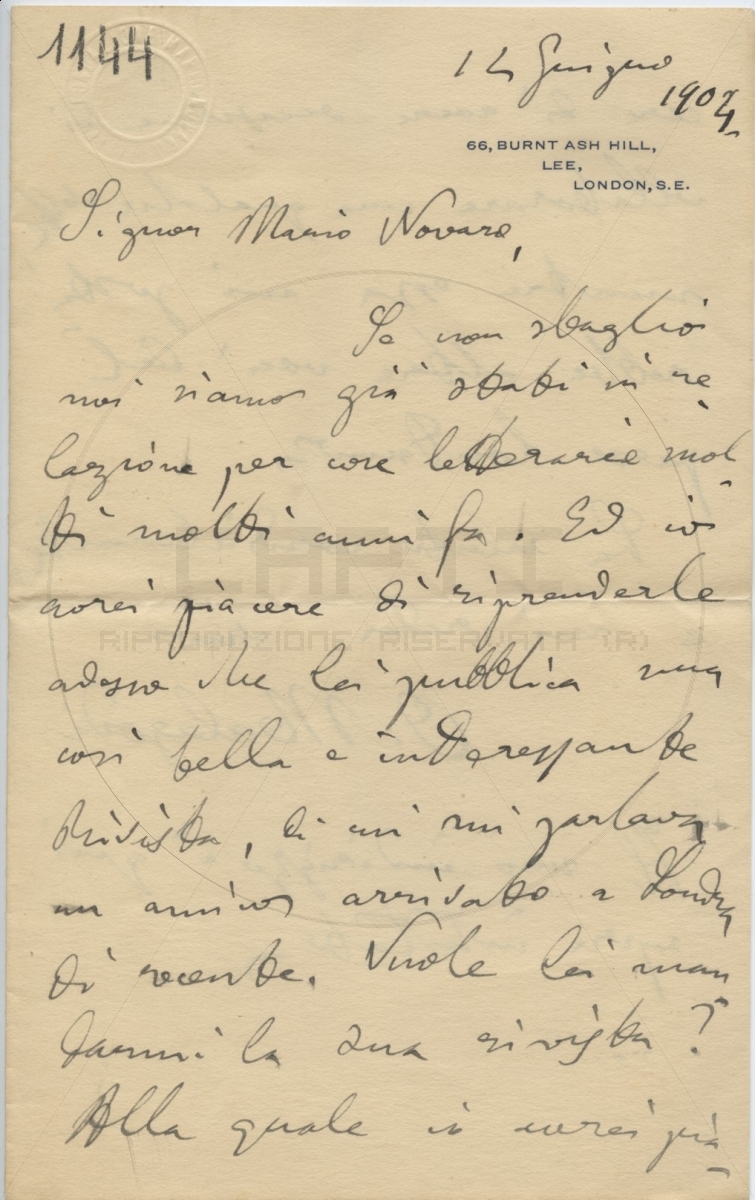 1144
14 Giugno
1904
66, BURNT ASH HILL,
LEE,
LONDON, S.E.
Signor Mario Novaro,
Se non sbaglio
noi siamo già stati in re
lazione per cose letterarie mol
ti molti anni fa. Ed io
avrei piacere di riprenderle
adesso che lei pubblica una
così bella e interessante
Rivista, di cui mi parlava
un amico arrivato a Londra
di recente. Vuole lei man
darmi la sua rivista?
Alla quale io avrei pia-
RIPRODUZIONE RISERVATA (R)